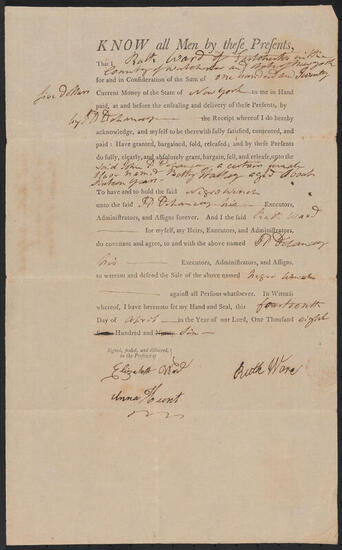 KNOW all Men by these Presents,
That I Ruth Ward of Eastchester in the
County of Westchester and State of New York
for and in Consideration of the Sum of one hundred and Seventy
five dollars Current Money of the State of New York to me in Hand
paid, at and before the ensealing and delivery of these Presents, by
the Receipt whereof I do hereby
acknowledge, and myself to be therewith fully satisfied, contented, and
paid: Have granted, bargained, sold, released; and by these Presents
do fully, clearly, and absolutely grant, bargain, sell, and release, unto the
said John P. a certain female
Slave named Betty aged about
Sixteen years
To have and to hold the said Negro Wench
unto the said his Executors,
Administrators, and Assigns forever. And I the said Ruth Ward
for myself, my Heirs, Executors, and Administrators,
do covenant and agree, to and with the above named
his Executors, Administrators, and Assigns,
to warrant and defend the Sale of the above named Negro Wench
against all Persons whatsoever. In Witness
whereof, I have hereunto set my Hand and Seal, this fourteenth
Day of April in the Year of our Lord, One Thousand eight
Hundred and Ninety Six
Signed, sealed, and delivered,
in the Presence of
Elizabeth Ward
Ruth Ward
Anna Hunt